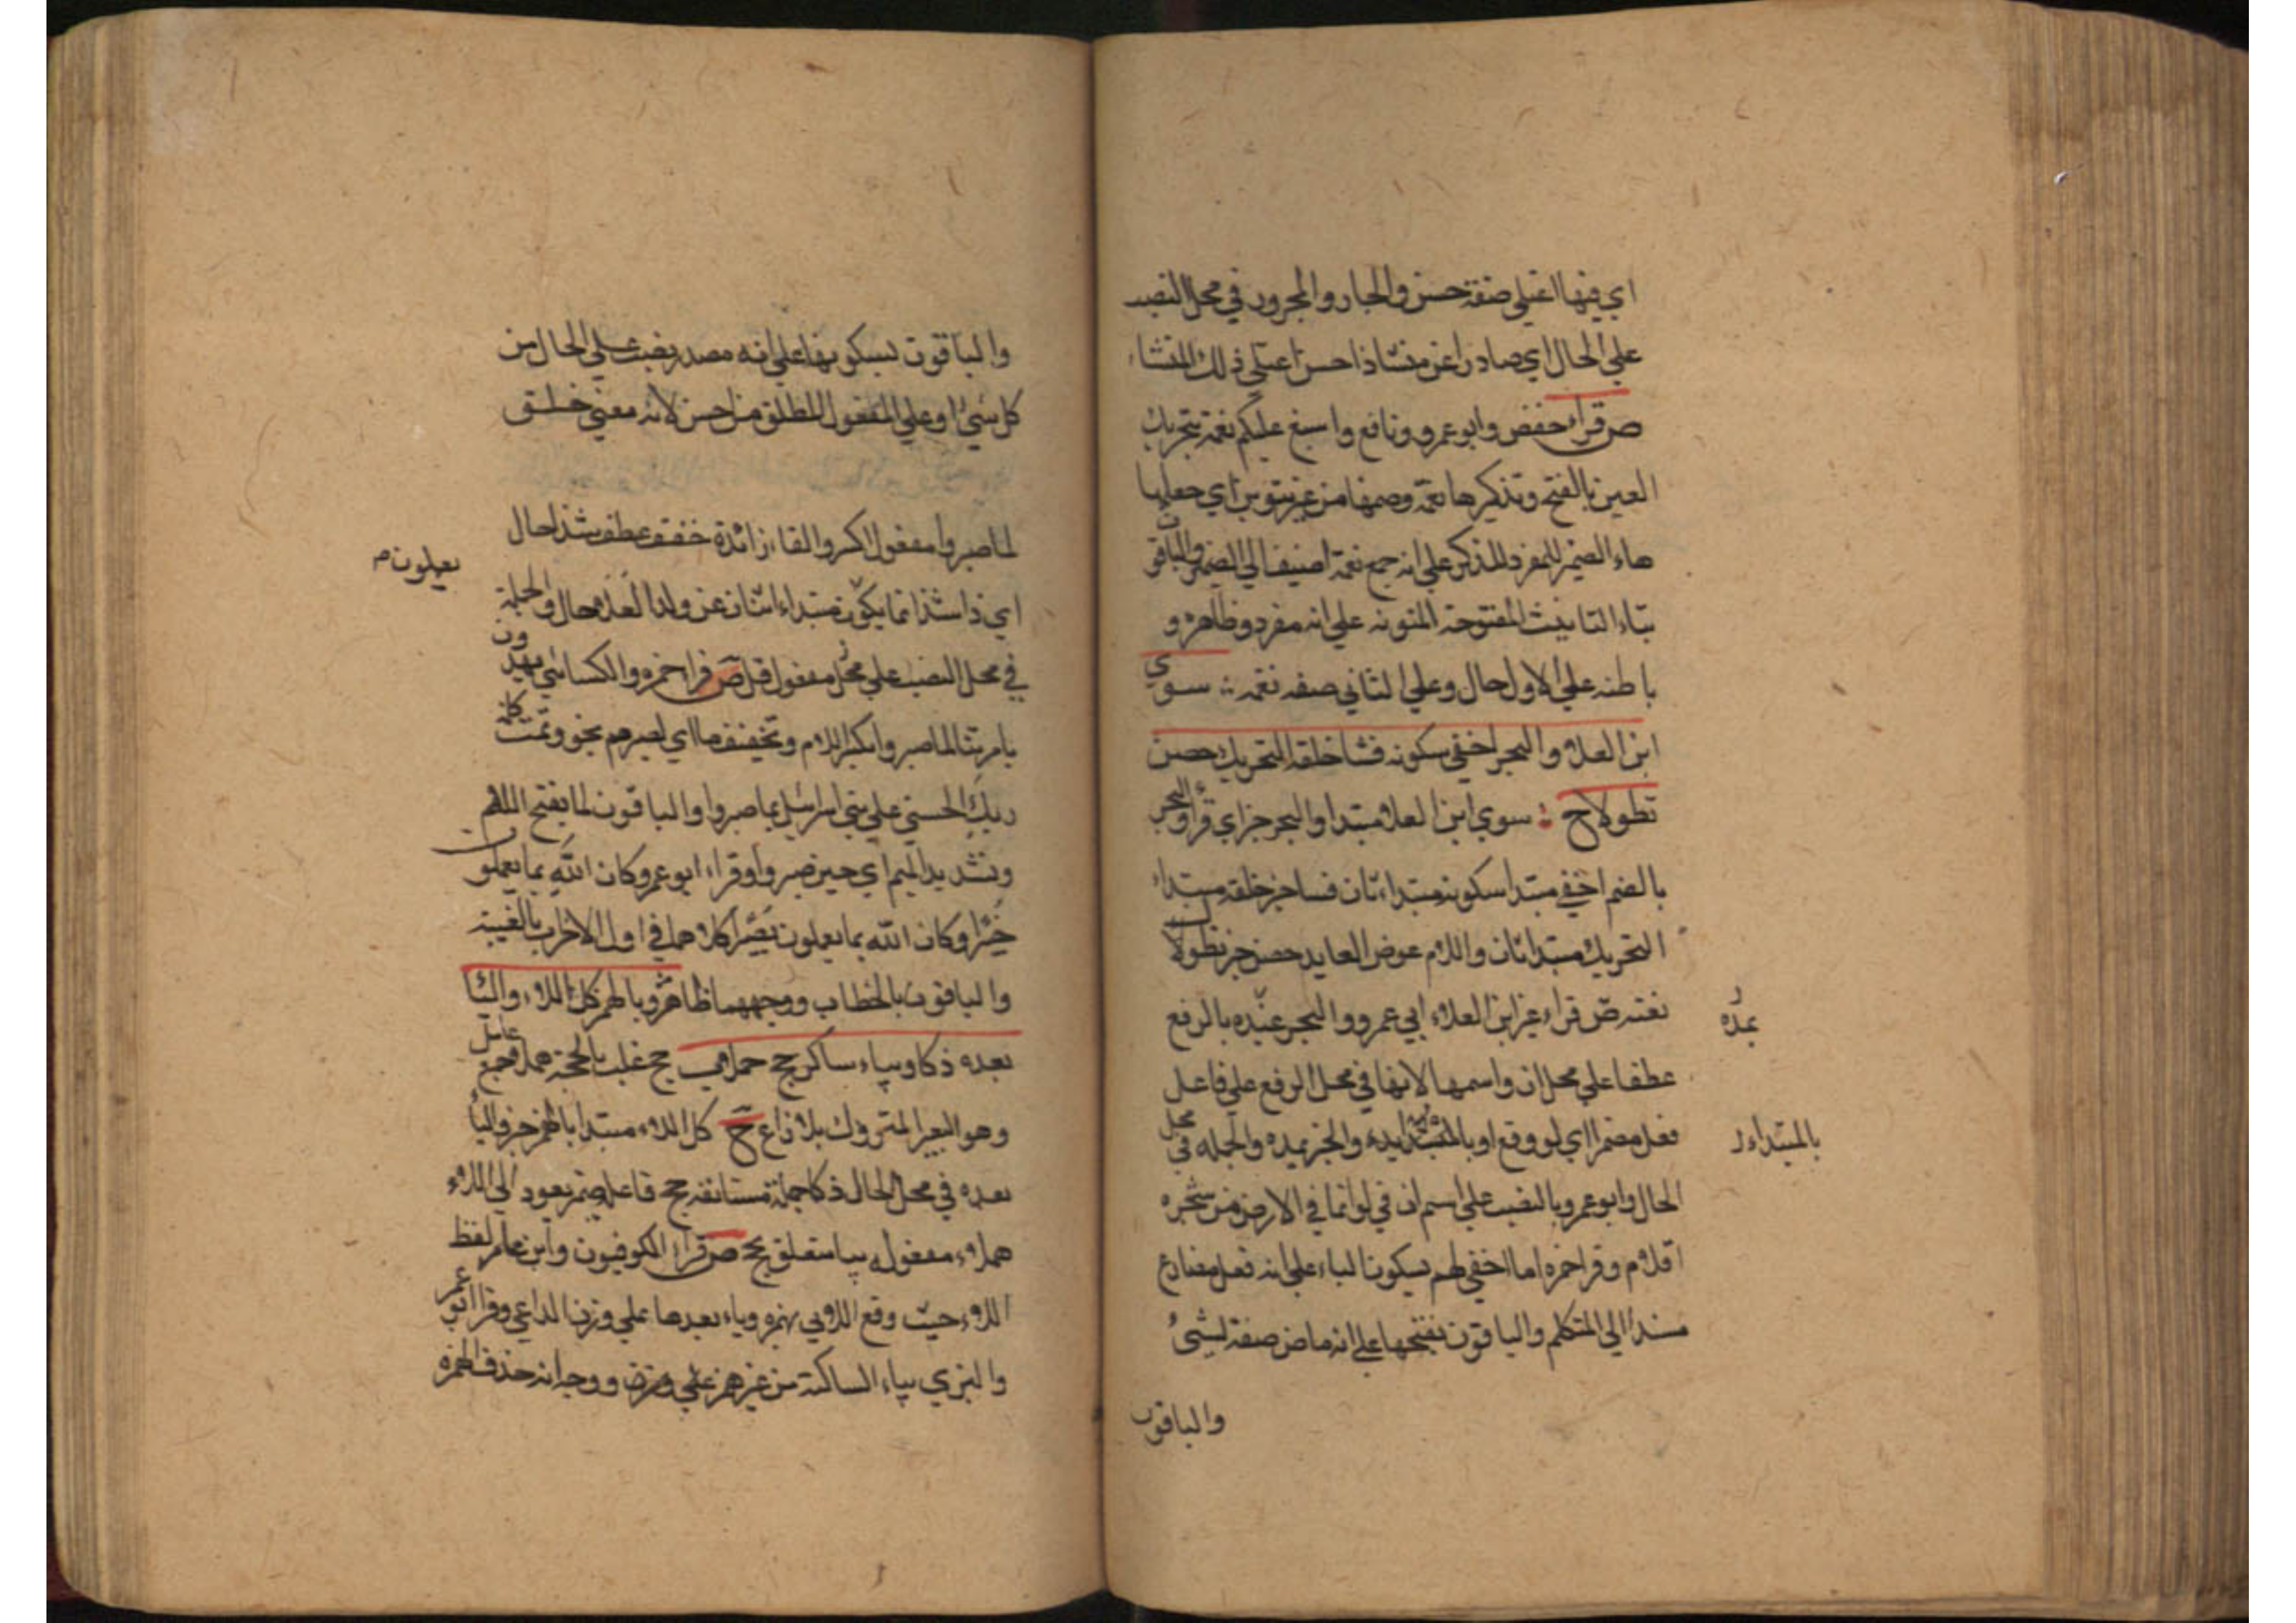 اي فيها اعتلى صفة حسن والجار والمجرور في محل النصب
على الحال اي صادرا عن منشاء ذا حسن اعتلى ذلك المنشاء
ص قراء حفص وابو عمرو ونافع واسبغ عليكم نعمه بتحريك
العين بالفتح وتذكير هاء نعمه وضمها من غير تنوين اي جعلها
هاء الضمير للمفرد المذكر على انه جمع نعمة اضيف الى الضمير والباقون
بتاء التانيث المفتوحة المنونة على انه مفرد وظاهره و
باطنه على الاول حال وعلى الثاني صفه نعمه سوي
ابن العلا والبحر اخفي سكونه فشا خلقه التحريك حصن
تطولا ح سوي ابن العلا مبتدا والبحر خبر اي قراء والبحر
بالضم اخفي مبتدا سكونه مبتداء ثان فسا خبر خلقه مبتداء
التحريك مبتدا ثان واللام عوض العايد حصن خبر تطولا
نعته ص قراء غير ابن العلاء ابي عمرو والبحر يمده بالرفع
يمده
عطفا على محل ان واسمها لانها في محل الرفع على فاعل
فعل مضمر اي لو وقع او بالمبتدا والخبر يمده والجمله في محل
بالمبتداء
الحال وابو عمرو بالنصب على اسم ان في لو انما في الارض من شجره
اقلام وقرا حمزه اما اخفي لهم بسكون الياء على انه فعل مضارع
مسندا الى المتكلم والباقون بفتحها على انه ماض صفة لشيء
والباقون
والباقون بسكونها على انه مصدر نصب على الحال من
كل شيء او على المفعول المطلق من احسن لانه معنى خلق
لما صبروا مفعول اكسر والفاء زائدة خفف عطف شذا حال
اي ذا شذا بما يعملون مبتداء اثنان عن ولد العلا حال والجملة
يعملون
في محل النصب على محل مفعول قل ص قرا حمزه والكسائي يهدون
بامرنا لما صبروا بكسر اللام وتخفيفها اي لصبرهم نحو وتمت كلمة
ربك الحسني على بني اسرائيل بما صبروا والباقون لما بفتح اللام
وتشديد الميم اي حين صبروا وقراء ابو عمرو كان الله بما يعملون
خبيرا وكان الله بما يعملون بصيرا كلاهما في اول الاحزاب بالغيبة
والباقون بالخطاب ووجههما ظاهر وبالهمز كل اللاء والياء
بعده ذكا وبياء ساكن حج هملا حج غلب بالحجة همل جمع هامل
وهو البعير المتروك بلا راع ح كل اللاء مبتدا بالهمز خبر والياء
بعده في محل الحال ذكا جملة مستانفه حج فاعله ضمير يعود الى اللاء
هملاء مفعوله بيا متعلق بحج ص قراء الكوفيون وابن عامر لفظ
اللاء حيث وقع اللائي بهمزه وياء بعدها على وزن الداعي وقرا ابو عمرو
والبزي بياء الساكنة من غير همز على وزن ووجه انه حذف الهمزه